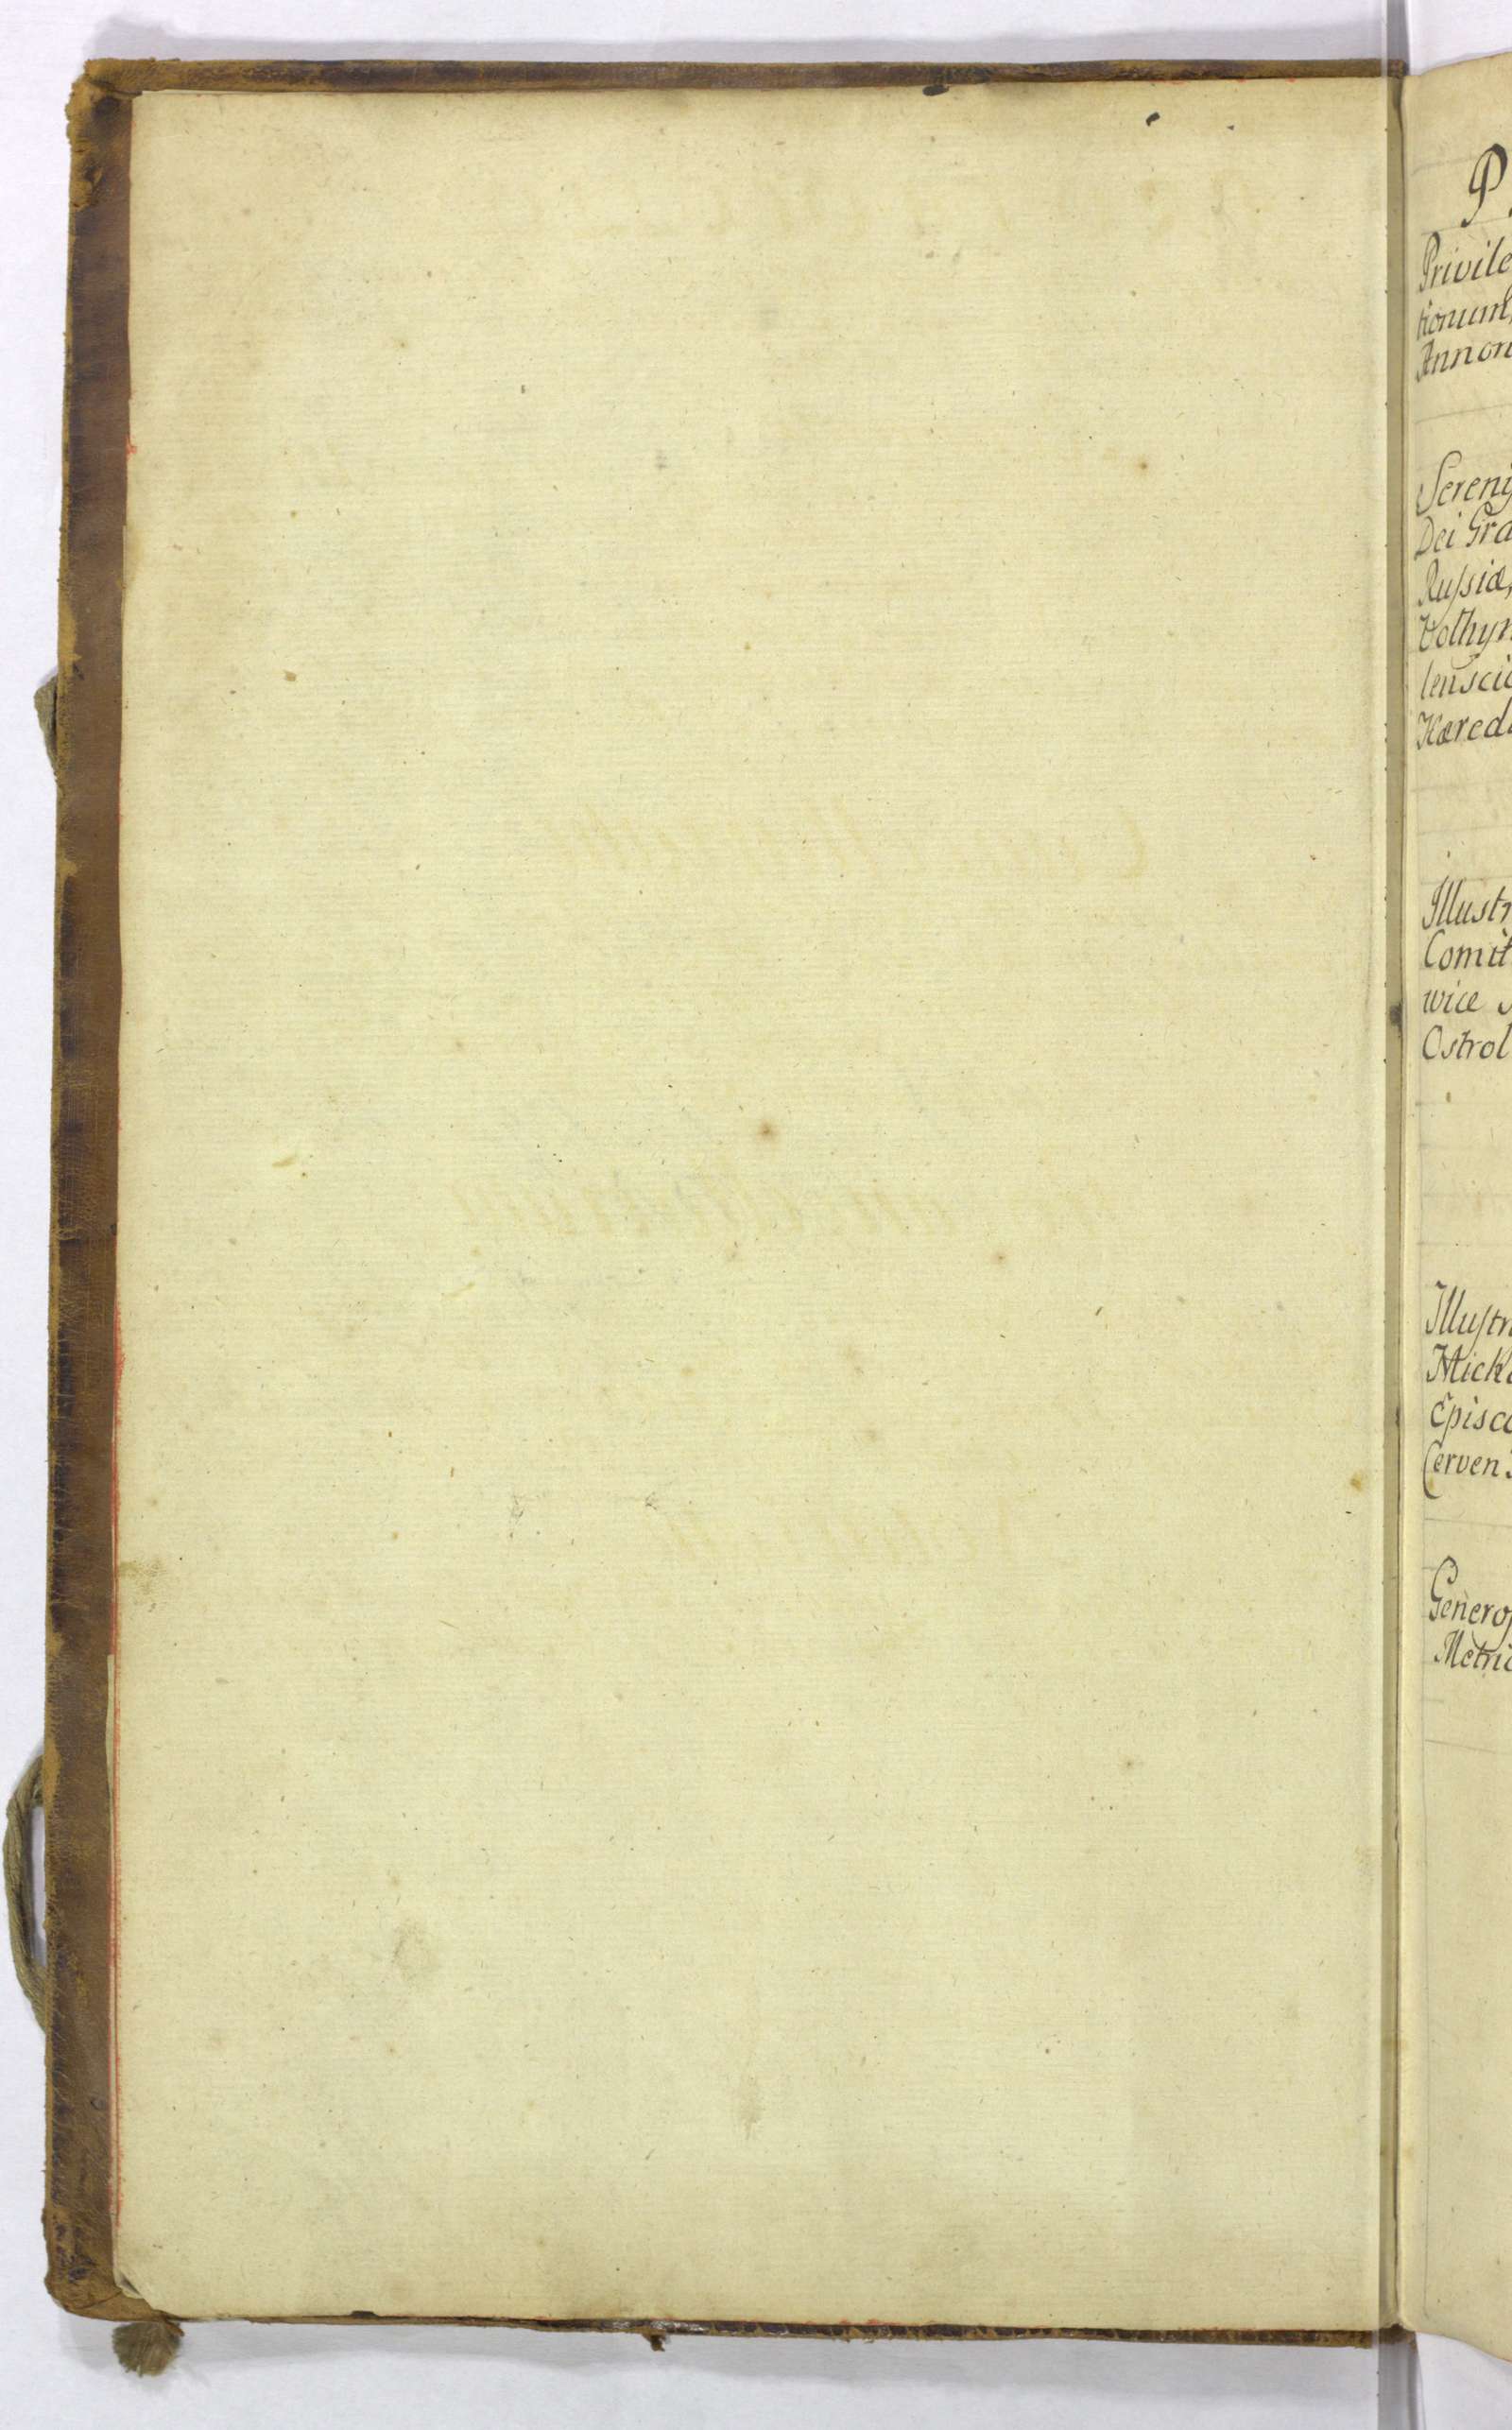 P.
Privile
tionum,
Annon
Sereniſ
Dei Gra
Ruſsiæ,
Volhyn
lenscia
Hæred
Illustr
Comit
wice S
Ostrol
Illuſtr
Mick
Episco
Cerven
Generoſ
Metric